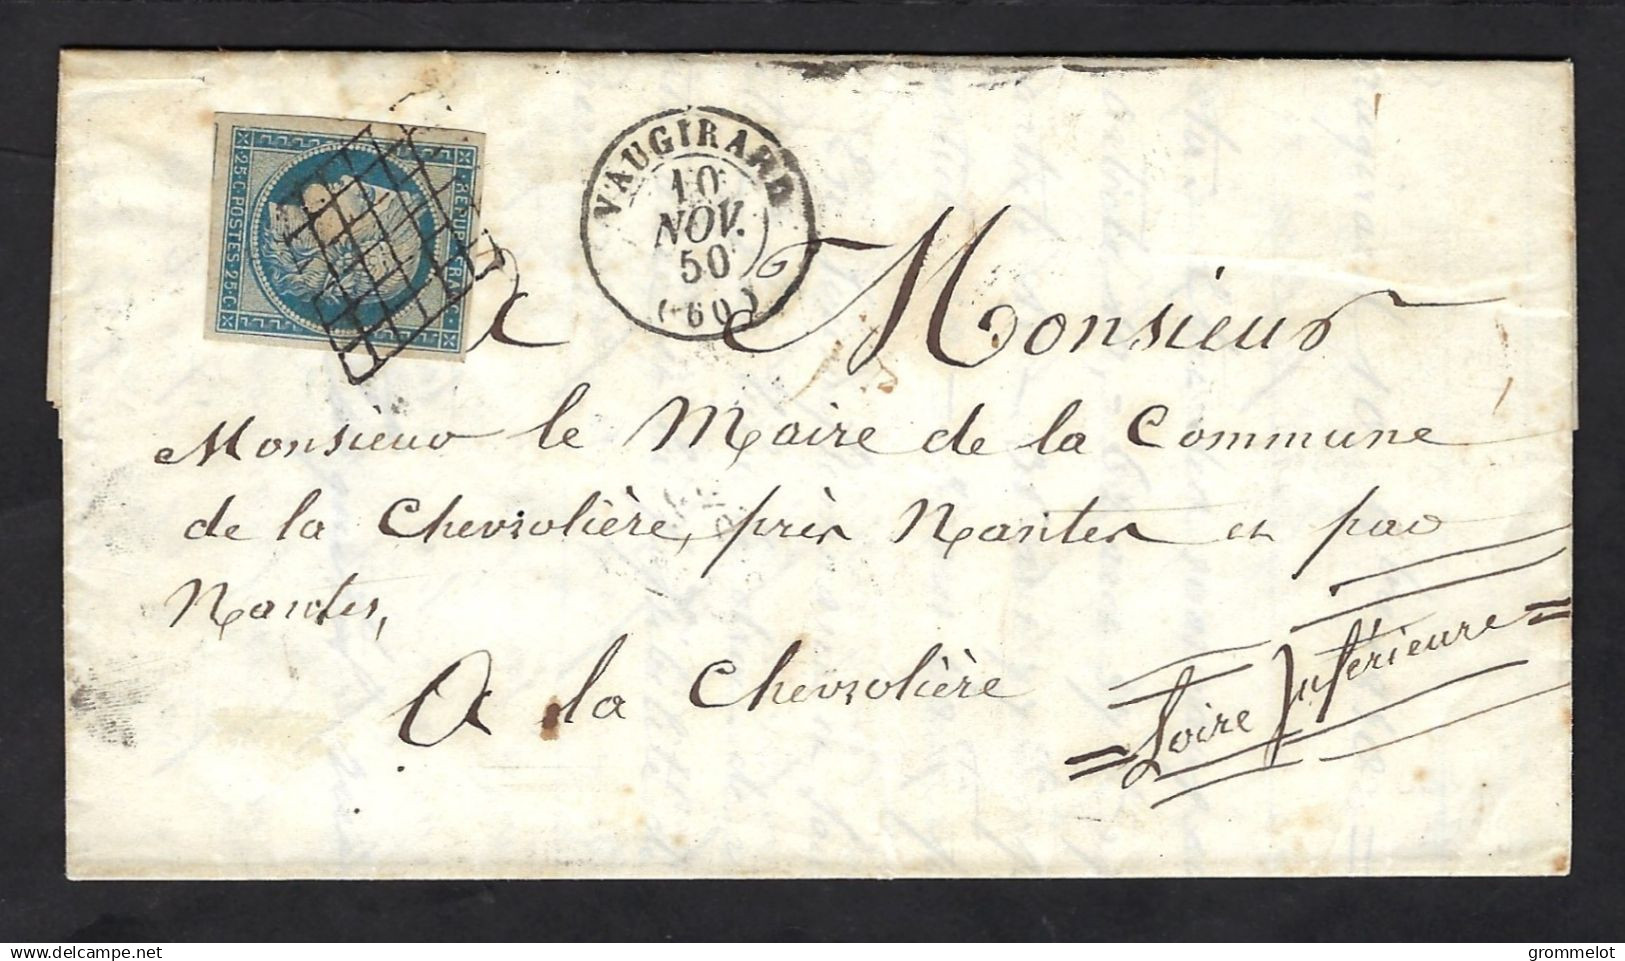 REPUB. FRANC.
25.C. POSTES. 25.C.
VAUGIRARD
10
NOV.
50
(60)
A Monsieur
Monsieur le Maire de la Commune
de la Chevrolière, près Nantes et par
Nantes,
A la Chevrolière
Loire Inférieure
delcampe.net
grommelot